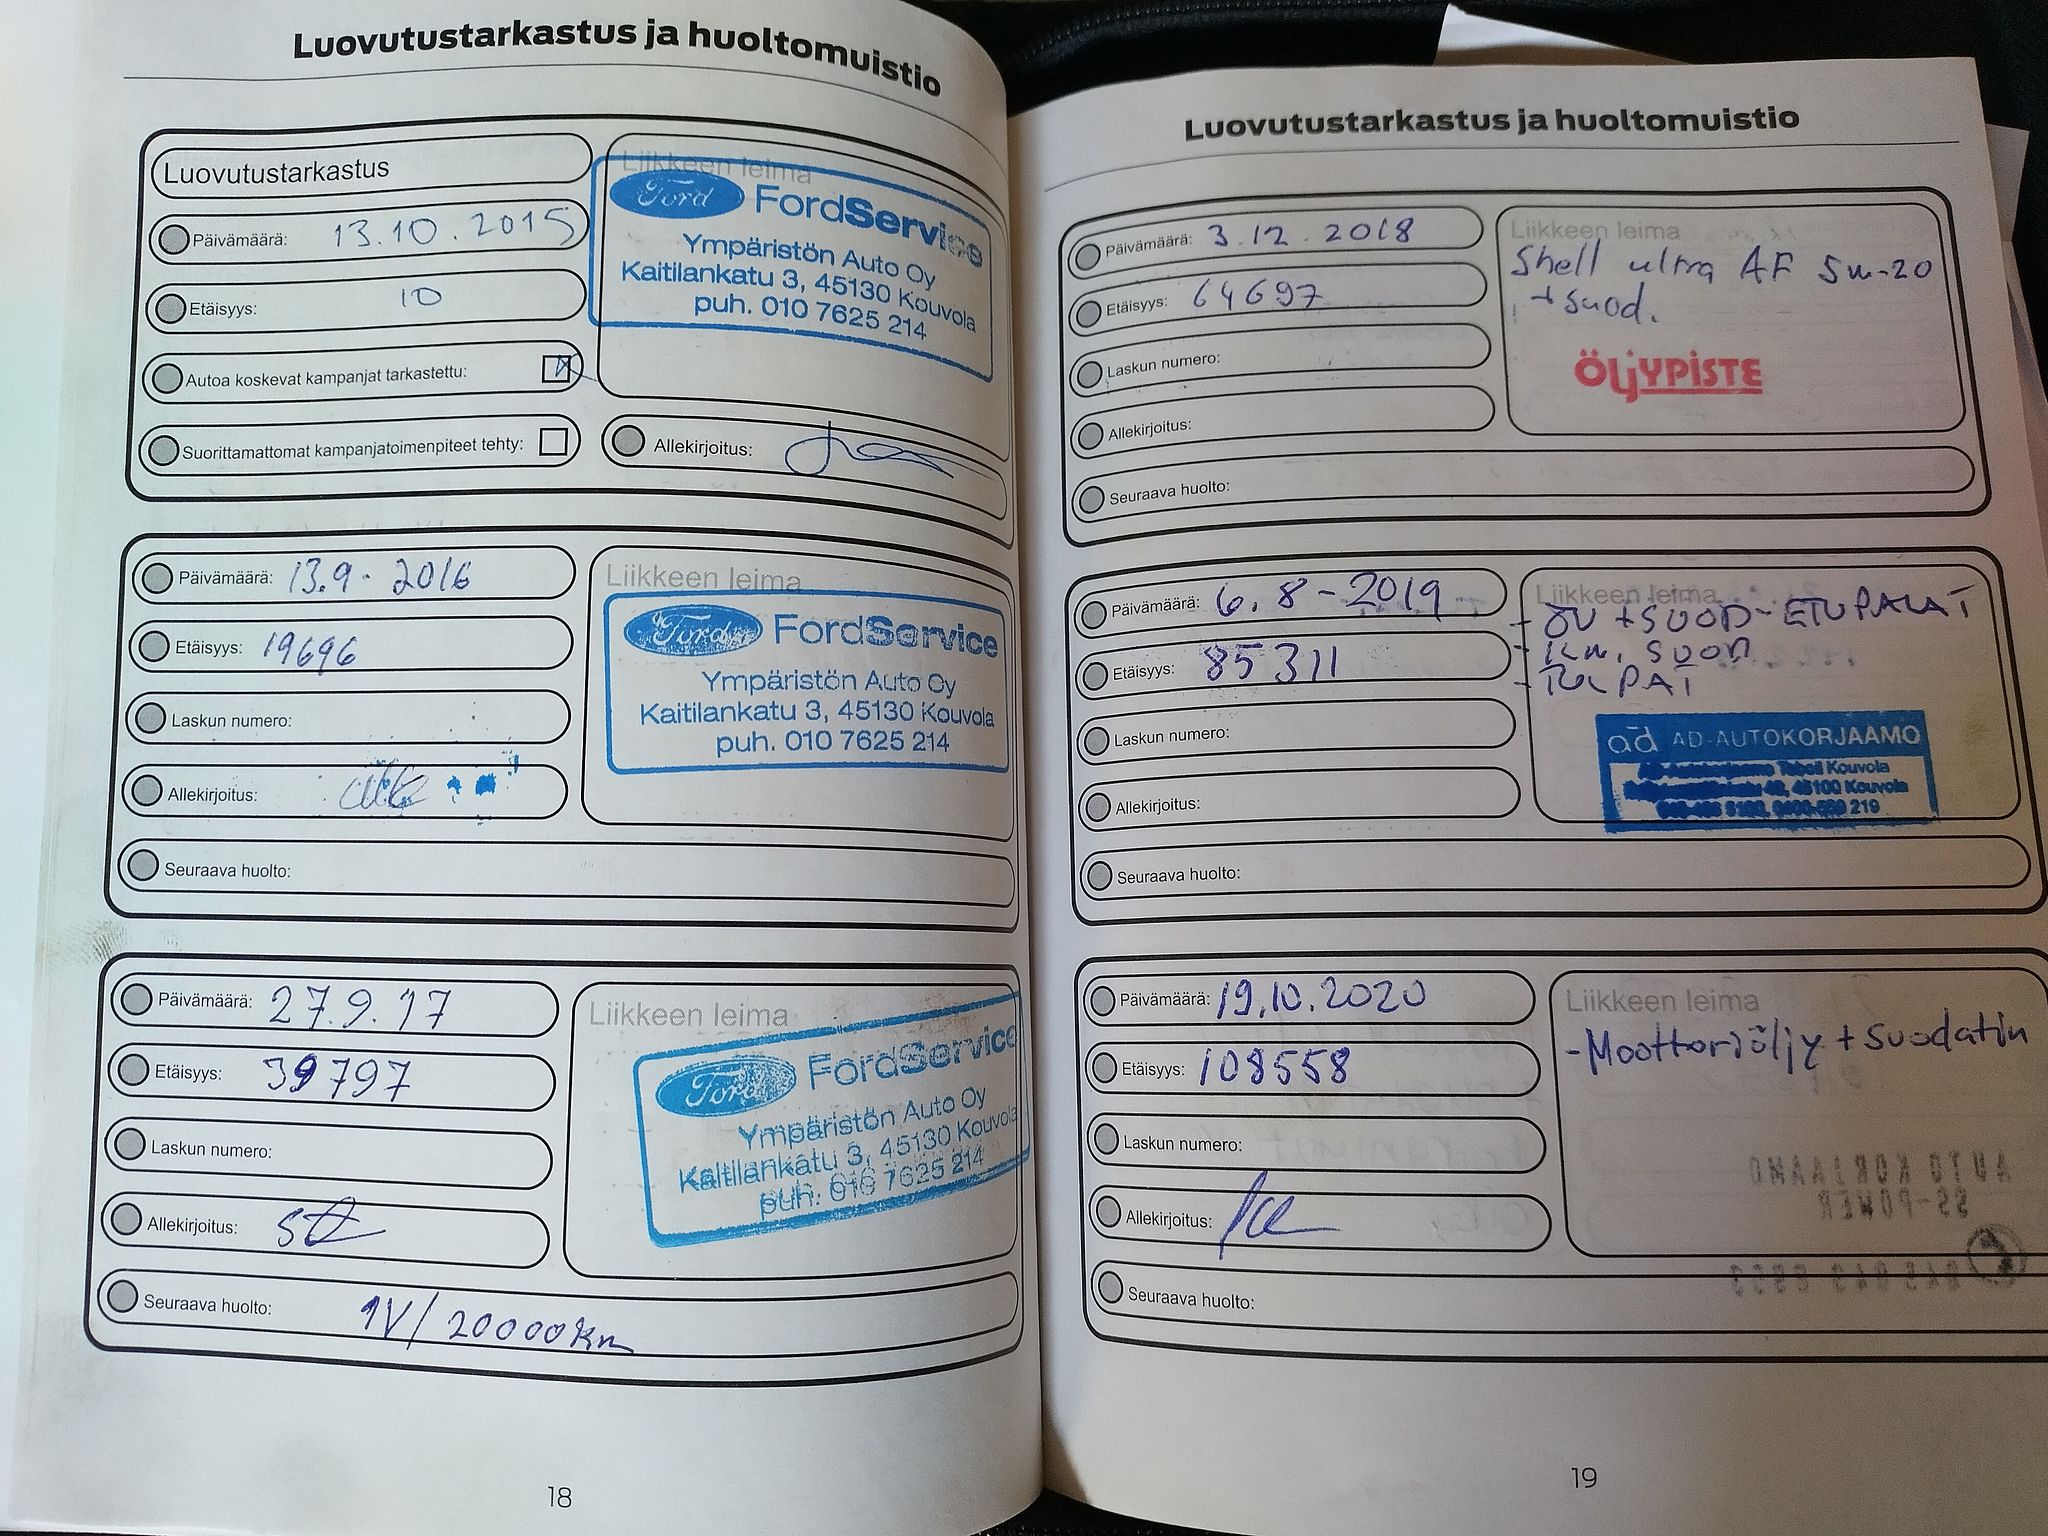 Luovutustarkastus ja huoltomuistio
Luovutustarkastus
Päivämäärä: 13.10.2015
Etäisyys: 10
Autoa koskevat kampanjat tarkastettu:
Suorittamattomat kampanjatoimenpiteet tehty:
Liikkeen leima
Ford FordService
Ympäristön Auto Oy
Kaitilankatu 3, 45130 Kouvola
puh. 010 7625 214
Allekirjoitus:
Päivämäärä: 13.9.2016
Etäisyys: 19696
Laskun numero:
Allekirjoitus:
Seuraava huolto:
Liikkeen leima
Ford FordService
Ympäristön Auto Oy
Kaitilankatu 3, 45130 Kouvola
puh. 010 7625 214
Päivämäärä: 27.9.17
Etäisyys: 39797
Laskun numero:
Allekirjoitus:
Seuraava huolto: 1V/20000km
Liikkeen leima
Ford FordService
Ympäristön Auto Oy
Kaitilankatu 3, 45130 Kouvola
puh. 010 7625 214
18
Luovutustarkastus ja huoltomuistio
Päivämäärä: 3.12.2018
Etäisyys: 64697
Laskun numero:
Allekirjoitus:
Seuraava huolto:
Liikkeen leima
Shell ultra AF 5w-20
+ suod.
ÖljYPISTE
Päivämäärä: 6.8-2019
Etäisyys: 85311
Laskun numero:
Allekirjoitus:
Seuraava huolto:
Liikkeen leima
- ÖV + SUOD - ETUPALAT
- SUOD
ad AD-AUTOKORJAAMO
Kouvola
45100 Kouvola
219
Päivämäärä: 19.10.2020
Etäisyys: 108558
Laskun numero:
Allekirjoitus:
Seuraava huolto:
Liikkeen leima
- Moottoriöljy + suodatin
AUTOKORJAAMO
SS-POWER
19